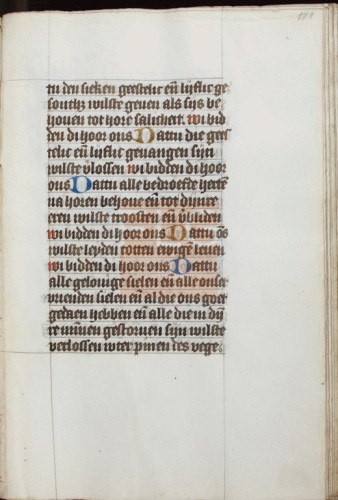 tu den sieken geestelic eñ lijflic ge
sonth3 wilste geuen als sijs be
houen tot hore salicheit. wi bid
den di hoor ons Dattu die gees
telic eñ lijflic geuangen sijn
wilste vlossen wi bidden di hoor
ons Dattu alle bedroefde hertē
na horen behoue eñ tot dijnre
eren wilste troosten eñ vbliden
wi bidden di hoor ons Dattu ōs
wilste leyden totten ewigē leuen
wi bidden di hoor ons Dattu
alle gelouige sielen eñ alle onser
vrienden sielen eñ al die ons goet
gedaen hebben eñ alle die in dij
re mīnen gestoruen sijn wilste
verlossen wter pinen des vege